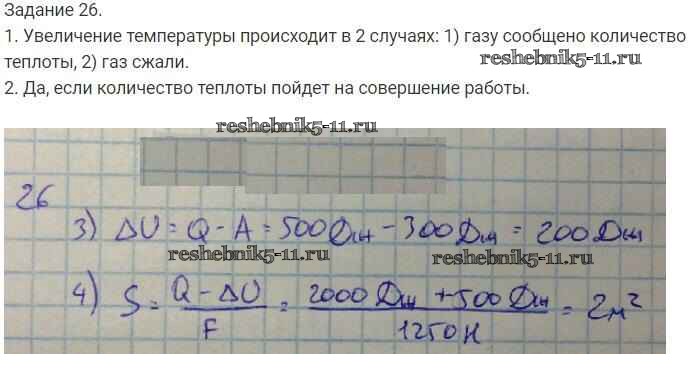 Задание 26.
1. Увеличение температуры происходит в 2 случаях: 1) газу сообщено количество
теплоты, 2) газ сжали.
reshebnik5-11.ru
2. Да, если количество теплоты пойдет на совершение работы.
reshebnik5-11.ru
26
3) ΔU = Q - A = 500 Дж - 300 Дж = 200 Дж
reshebnik5-11.ru
reshebnik5-11.ru
4) S = (Q - ΔU) / F = (2000 Дж + 500 Дж) / 1250 Н = 2 м²